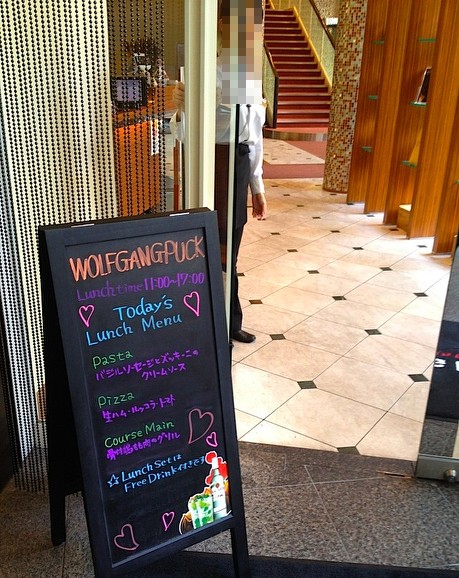 WOLFGANGPUCK
Lunch time 11:00~17:00
Today's
Lunch Menu
Pasta
バジルソーセージとズッキーニの
クリームソース
Pizza
生ハム・ルッコラ・トマト
Course Main
骨付鶏もも肉のグリル
☆Lunch Setは
Free Drink付きです